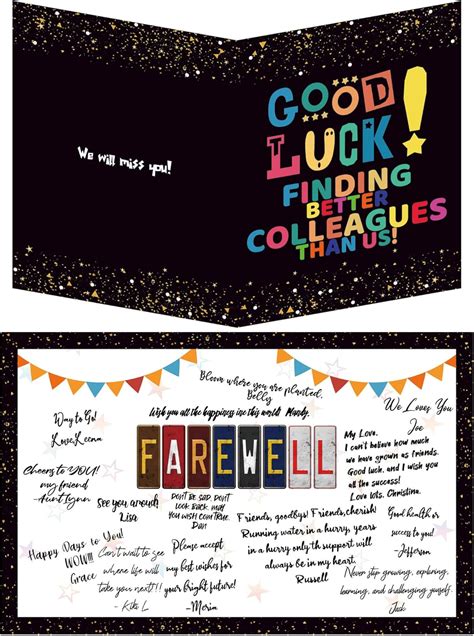 We will miss you!
GOOD
LUCK!
FINDING
BETTER
COLLEAGUES
THAN US!
Bloom where you are planted,
Belly
Wish you all the happiness in this world! Mandy.
We Loves You
Joe
Way to Go!
Love, Keena
FAREWELL
My Love,
I can't believe how much
we have grown as friends.
Good luck, and I wish you
all the success!
Love lots, Christina.
Cheers to YOU!
my friend
Aunt Lynn
See you around!
Lisa
Don't be sad, don't
look back, may
you wish come true.
Dan
Friends, goodbys! Friends, cherish!
Running water in a hurry, years
in a hurry only th support will
always be in my heart.
Russell
Good health or
success to
you!
Jefferson
Happy Days to You!
WOW!!!
Grace
Can't wait to see
where life will
take you next!!
- Kiki L
Please accept
my best wishes for
your bright future!
-Meria
Never stop growing, exploring,
learning, and challenging yourself.
Jack